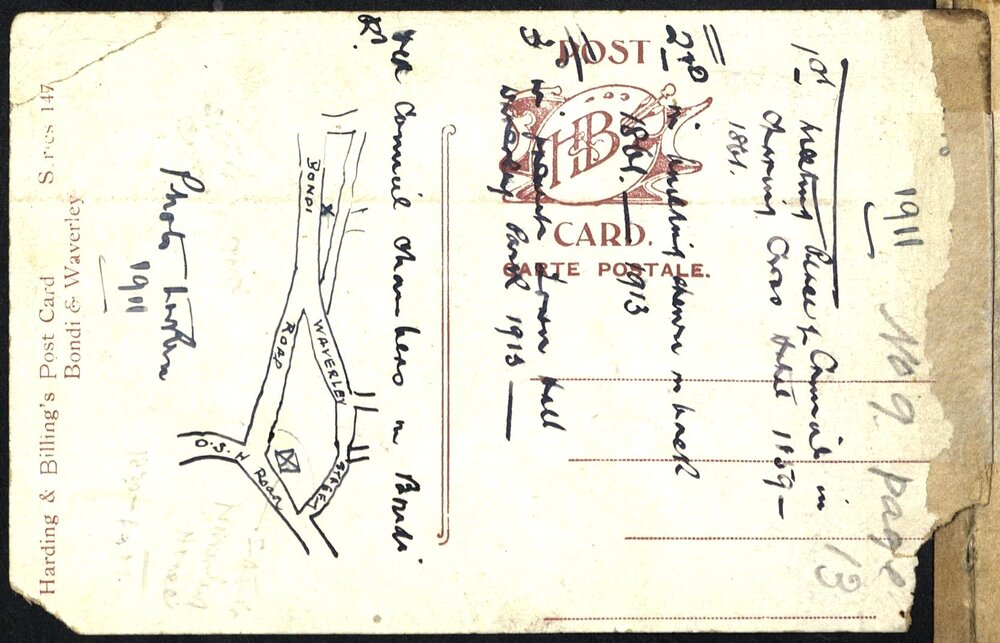 Harding & Billing's Post Card Series 147
Bondi & Waverley
POST
HB
CARD.
CARTE POSTALE.
1911
No 9 page
13
1st meeting place of Council in
Charing Cross Hotel 1859 –
1861.
2nd in building shewn in back
1861. – 1913
3 in present Town Hall
Park 1913 –
Council Chambers in Bondi
Rd.
BONDI
ROAD
WAVERLEY
STREET
O.S.H ROAD
X
Photo
1911